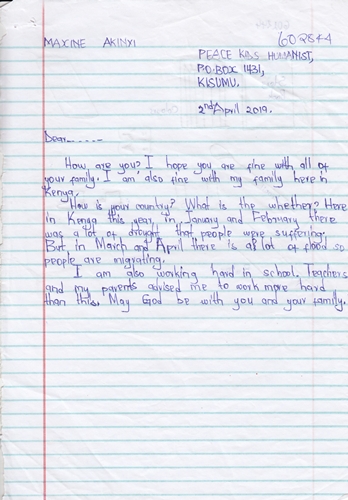 MAXINE AKINYI
602844
PEACE KIDS HUMANIST,
P.O.BOX 1431,
KISUMU.
2nd April 2019.
Dear......
How are you? I hope you are fine with all of
your family. I am also fine with my family here in
Kenya.
How is your country? What is the whether? Here
in Kenya this year, in January and February there
was a lot of drought that people were suffering.
But in March and April there is a lot of flood so
people are migrating.
I am also working hard in school. Teachers
and my parents advised me to work more hard
than this. May God be with you and your family.